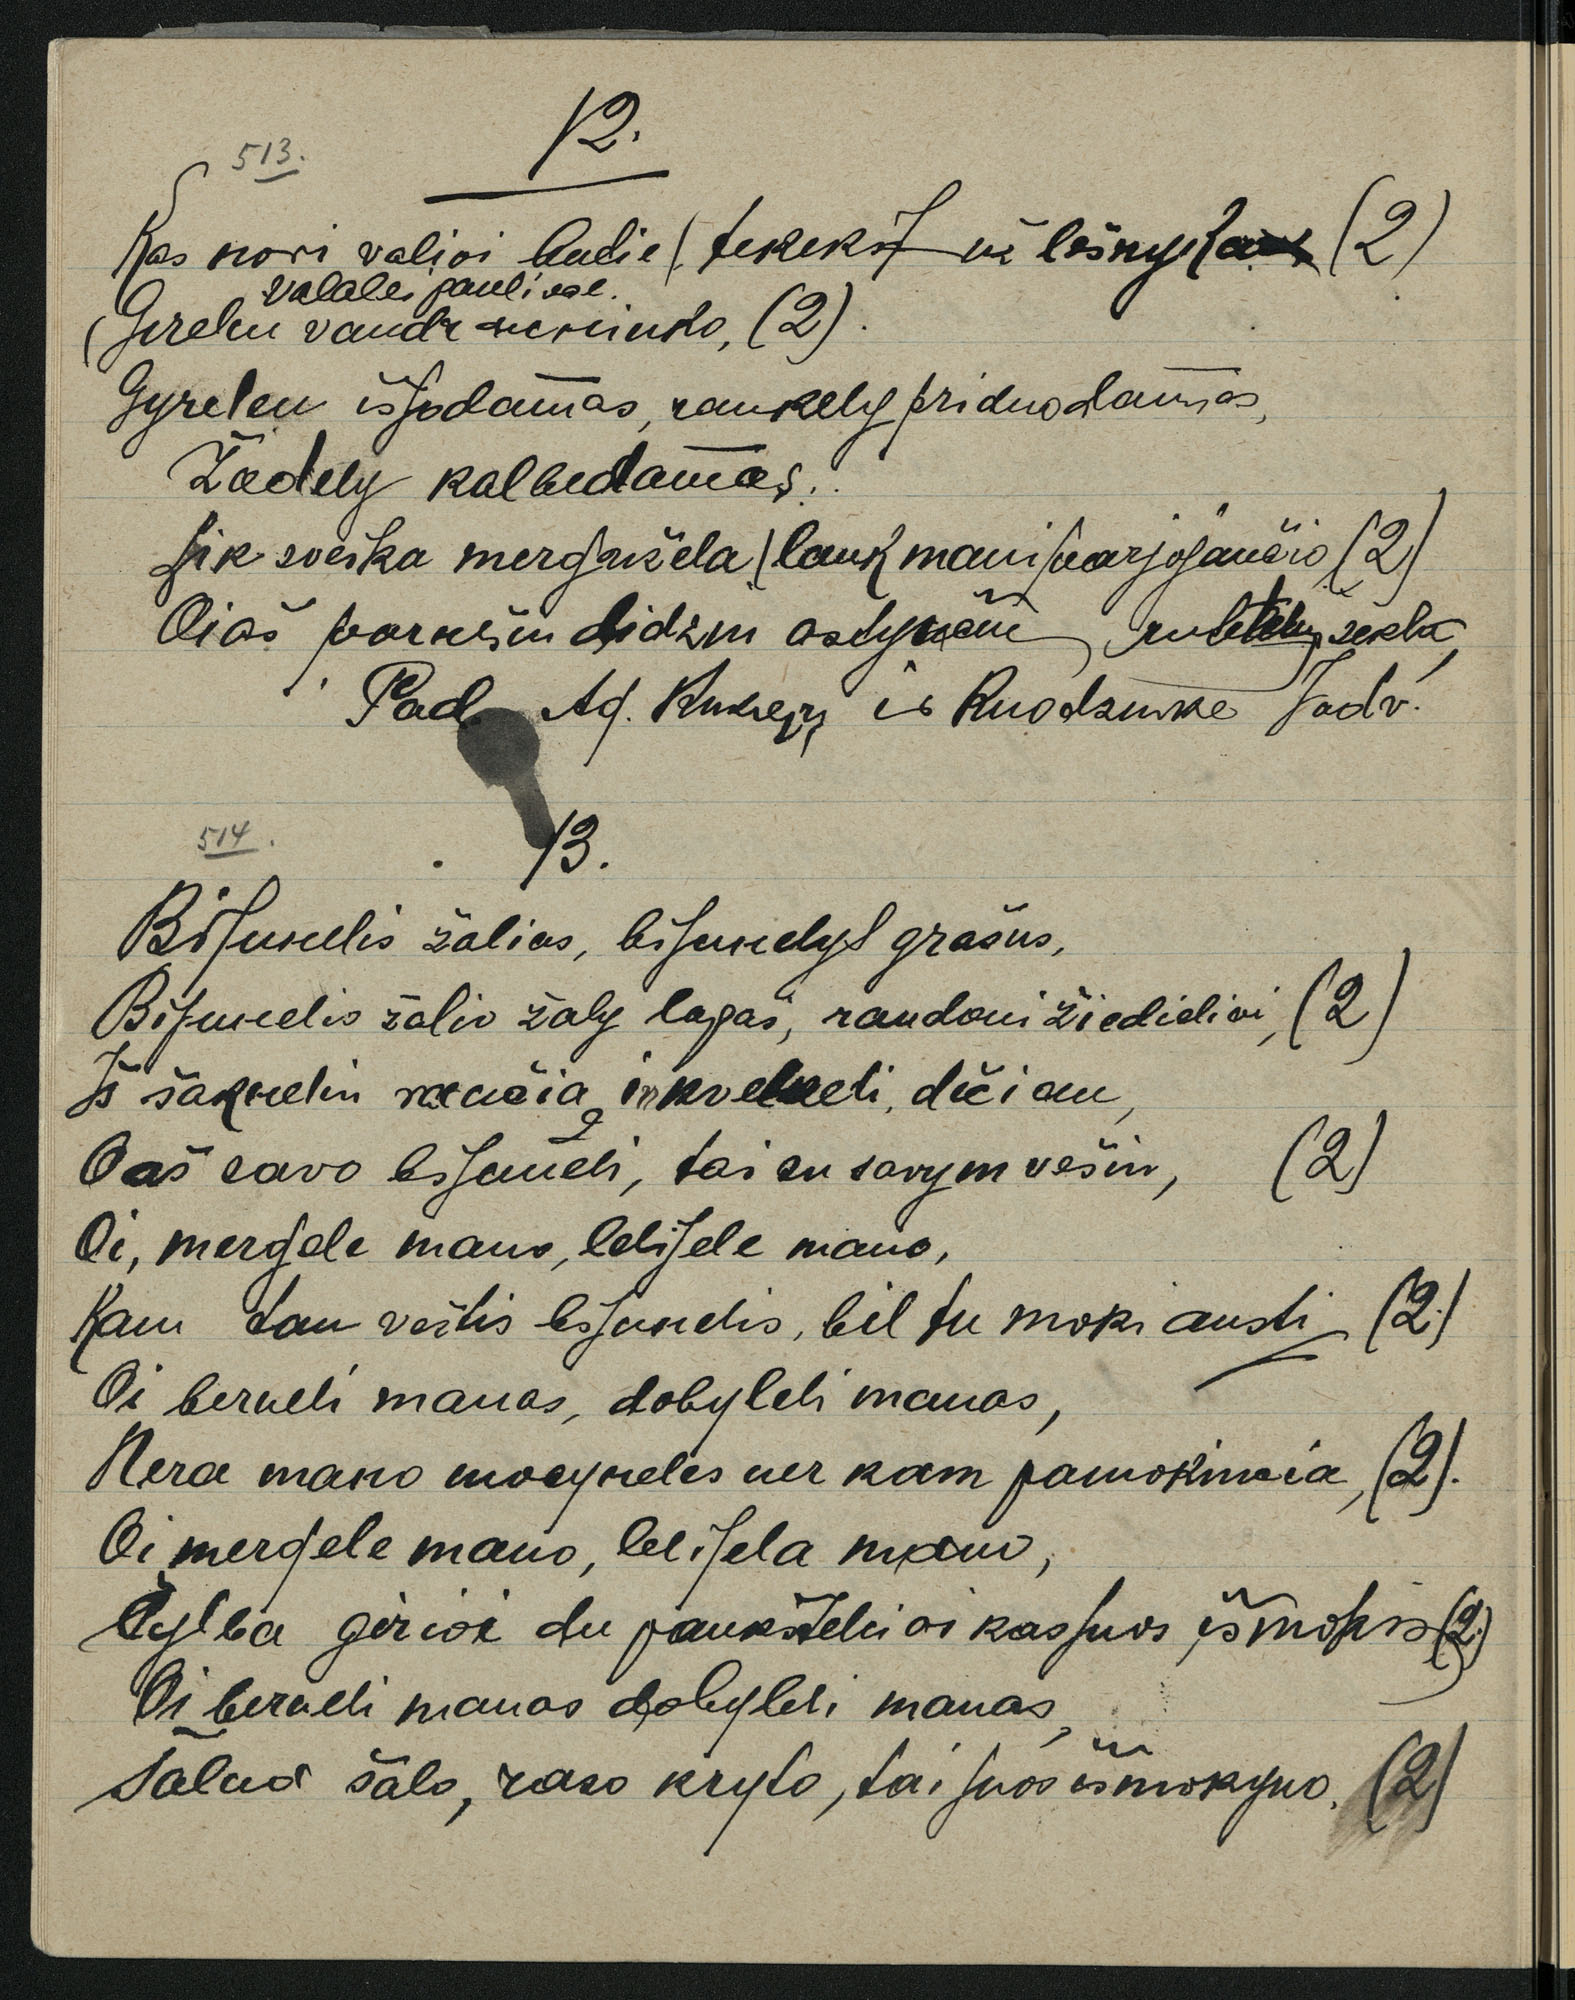 513.
12.
Kas nori valioi budie (tekekit už lėšnyka (2)
valales pauliose.
(Gireliu vandr, (2).
Gyreleu išjodamas, rankely priduodamas,
Žodely kalbedamas.
Lik sveika mergužela (lauk mani parjojančio (2)
Oi aš parnešiu didžiu rutelu sekla,
Pad. Ag. ir Ruodzuvke Jadv.
514.
13.
Bijunelis žalias, bijunelys gražus,
Bijunelio žalio žaly lapaš, raudoni žiedieliai, (2)
Iš šakneliu dičiau,
O aš savo bijuneli, tai su savym vešiu, (2)
Oi, mergele mano, lelijele mano,
Kam tau veštis bijunelis, bil tu moki austi (2)
Oi berneli manas, dobyleli manas,
Nera mano mocyneles ner kam pamokincia, (2).
Oi mergele mano, lelijela mano,
Čylba girioi du paukšteliai kas juos išmokis (2)
Oi berneli manas dobyleli manas,
Šalna šalo, raso kryto, tai juos išmokyno. (2)